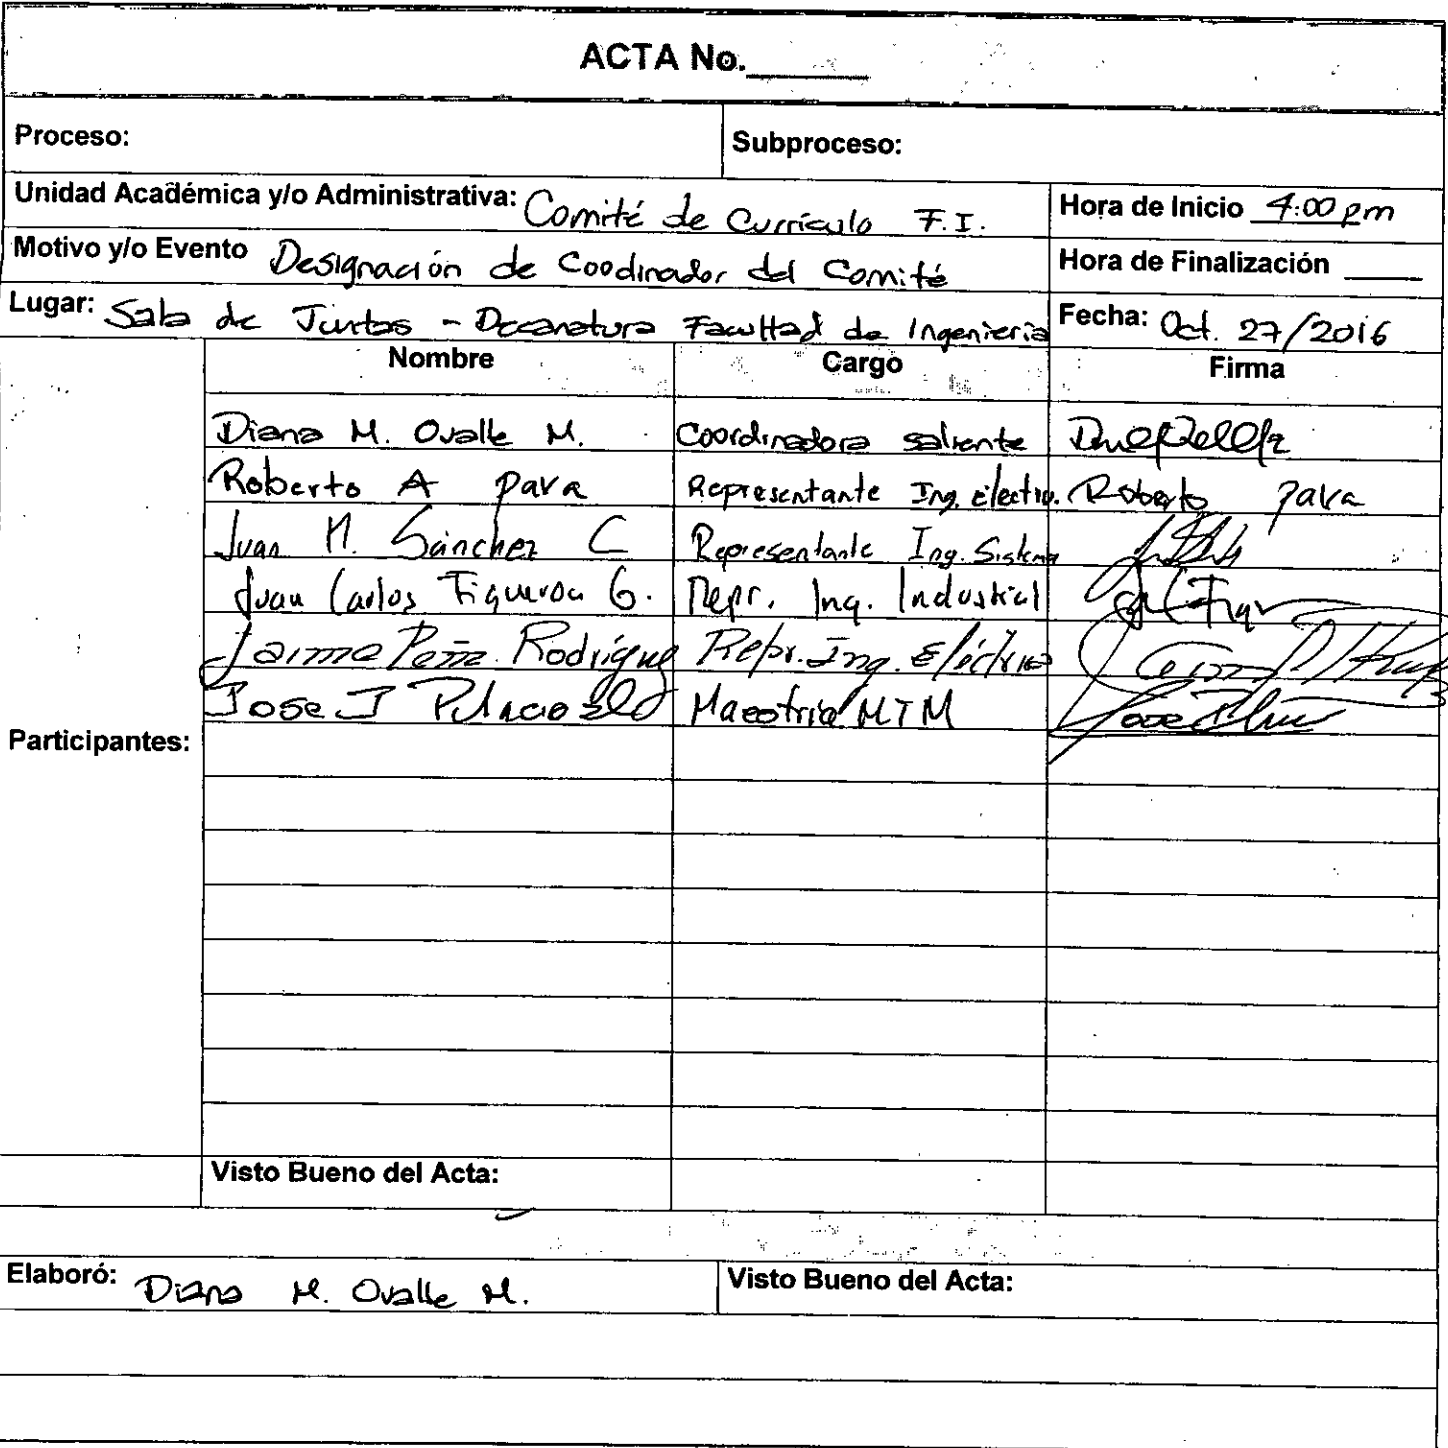 ACTA No.______
Proceso: Subproceso:
Unidad Académica y/o Administrativa: Comité de Currículo F.I. Hora de Inicio 4:00 pm
Motivo y/o Evento Designación de Coodinador del Comité Hora de Finalización ____
Lugar: Sala de Juntas - Decanatura Facultad de Ingeniería Fecha: Oct. 27/2016
Nombre Cargo Firma
Diana M. Ovalle M. Coordinadora saliente
Roberto A Pava Representante Ing. Electro. Roberto Pava
Juan M. Sánchez C Representante Ing. Sistema
Juan Carlos Figueroa G. Repr. Ing. Industrial
Jaime Peña Rodríguez Repr. Ing. Eléctrica
Jose J Maestria MTM
Participantes:
Visto Bueno del Acta:
Elaboró: Diana M. Ovalle M. Visto Bueno del Acta: